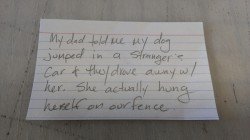 My dad told me my dog
jumped in a strangers
car & they drove away w/
her. She actually hung
herself on our fence.